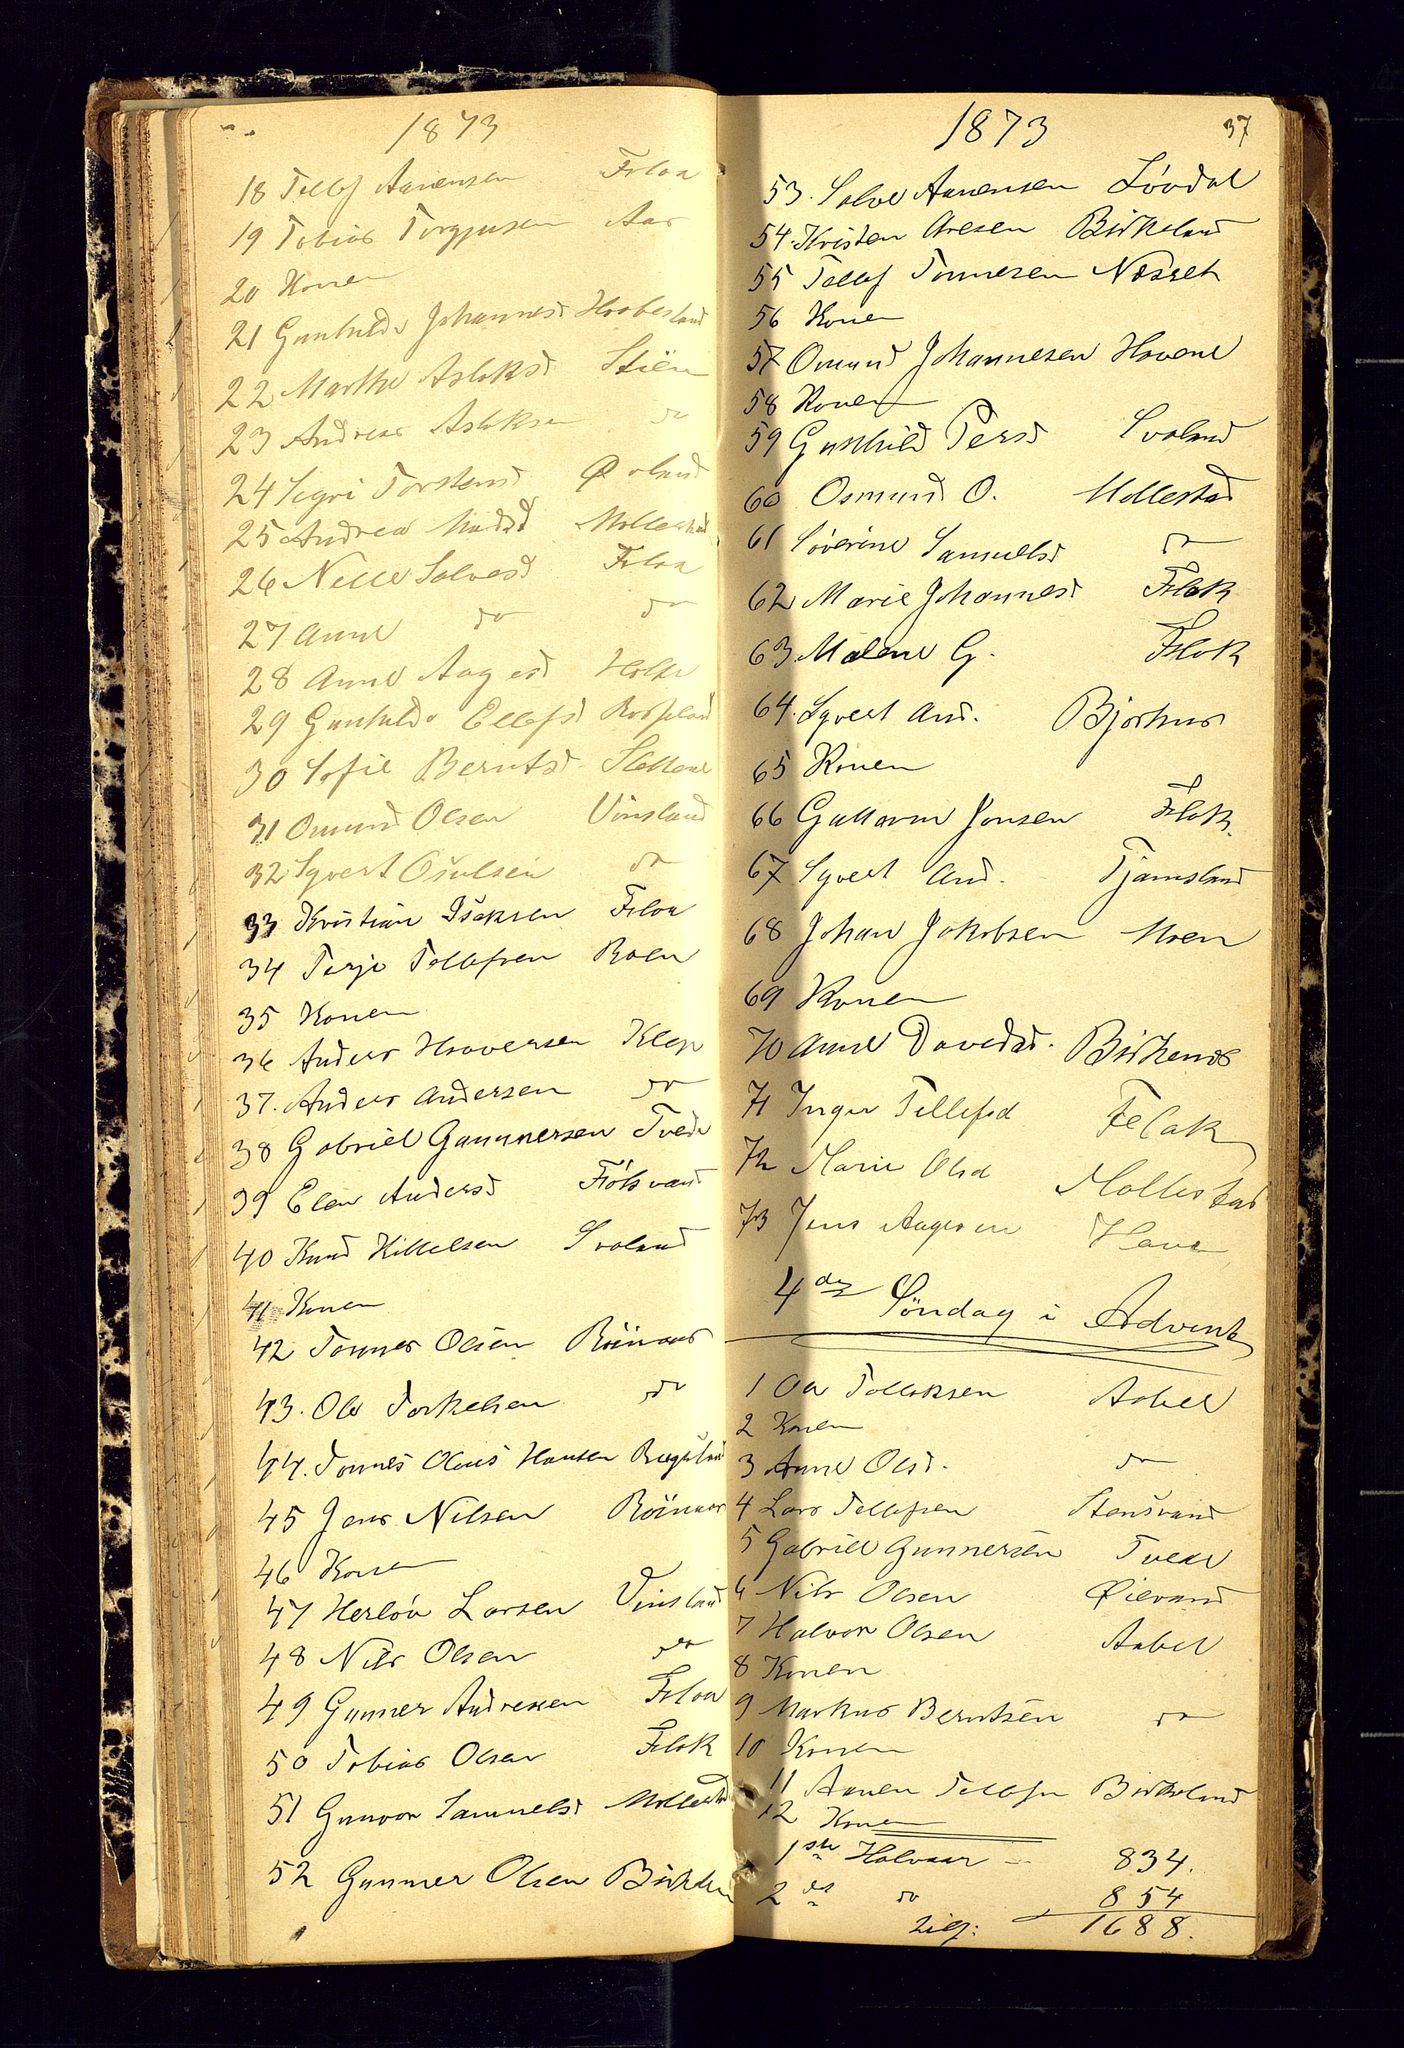 1873
18 Tellef Aanensen Felaa
19 Tobias Torgjusen Aas
20 Konen
21 Gunhilde Johannesd Haabesland
22 Marthe Aslaksd Stien
23 Andreas Aslaksen do
24 Sigri Torstensd
25 Andrea Madsd Mollestad
26 Nelle Salvesd Felaa
27 Anne do do
28 Anne Aagesd
29 Gunhilde Ellefsd
30 Sofie Berntsd
31 Omund Olsen Vinsland
32 Syvert Osulsen do
33 Kristian Isaksen Felaa
34 Terje Tellefsen Roen
35 Konen
36 Anders Haaversen Klep
37. Anders Andersen do
38 Gabriel Gunnersen Tvede
39 Elen Andersd
40 Knud Kittelsen Svaland
41 Konen
42 Tonnes Olsen Röinaas
43. Ole Torkelsen do
44. Tonnes Olaus Hansen
45 Jens Nilsen Röinaas
46 Konen
47 Herlöv Larsen Vinsland
48 Nils Olsen do
49 Gunner Andresen Felaa
50 Tobias Olsen Flak
51 Gunvor Samuelsd Mollestad
52 Gunner Olsen
1873 37
53. Salve Aanensen Lövdal
54. Kristen Aresen Birkeland
55 Tellef Tonnesen Nesset
56 Konen
57 Omund Johannesen Havene
58 Konen
59 Gunhild Persd Svaland
60 Osmund O. Mollestad
61 Söverine Samuelsd do
62 Marie Johannesd Flak
63 Malene G. Flak
64. Syvert And. Bjorhus
65 Konen
66 Guttorm Jonsen Flak.
67 Syvert And. Tjamsland
68 Johan Jakobsen Moen
69 Konen
70 Anne Davidsd. Birkenes
71 Inger Tellefsd Felak
72 Marie Olsd Mollestad
73 Jens Aagesen Have
4de Söndag i Advent
1 Ole Tellaksen Aabel
2 Konen
3 Anne Olsd. do
4 Lars Tellefsen Stensvand
5 Gabriel Gunnersen Tvede
6 Nils Olsen Øievand
7 Halvor Olsen Aabel
8 Konen
9 Markus Berntsen do
10 Konen
11 Aanen Tellefsen Birkeland
12 Konen
1ste Halvaar - 834.
2det do 854
Tils: 1688.